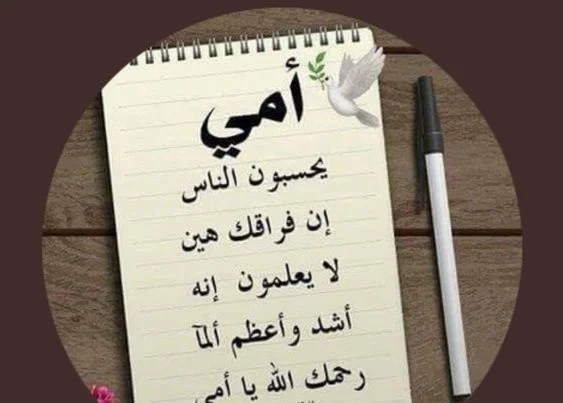 أمي
يحسبون الناس
إن فراقك هين
لا يعلمون إنه
أشد وأعظم ألمآ
رحمك الله يا أمي